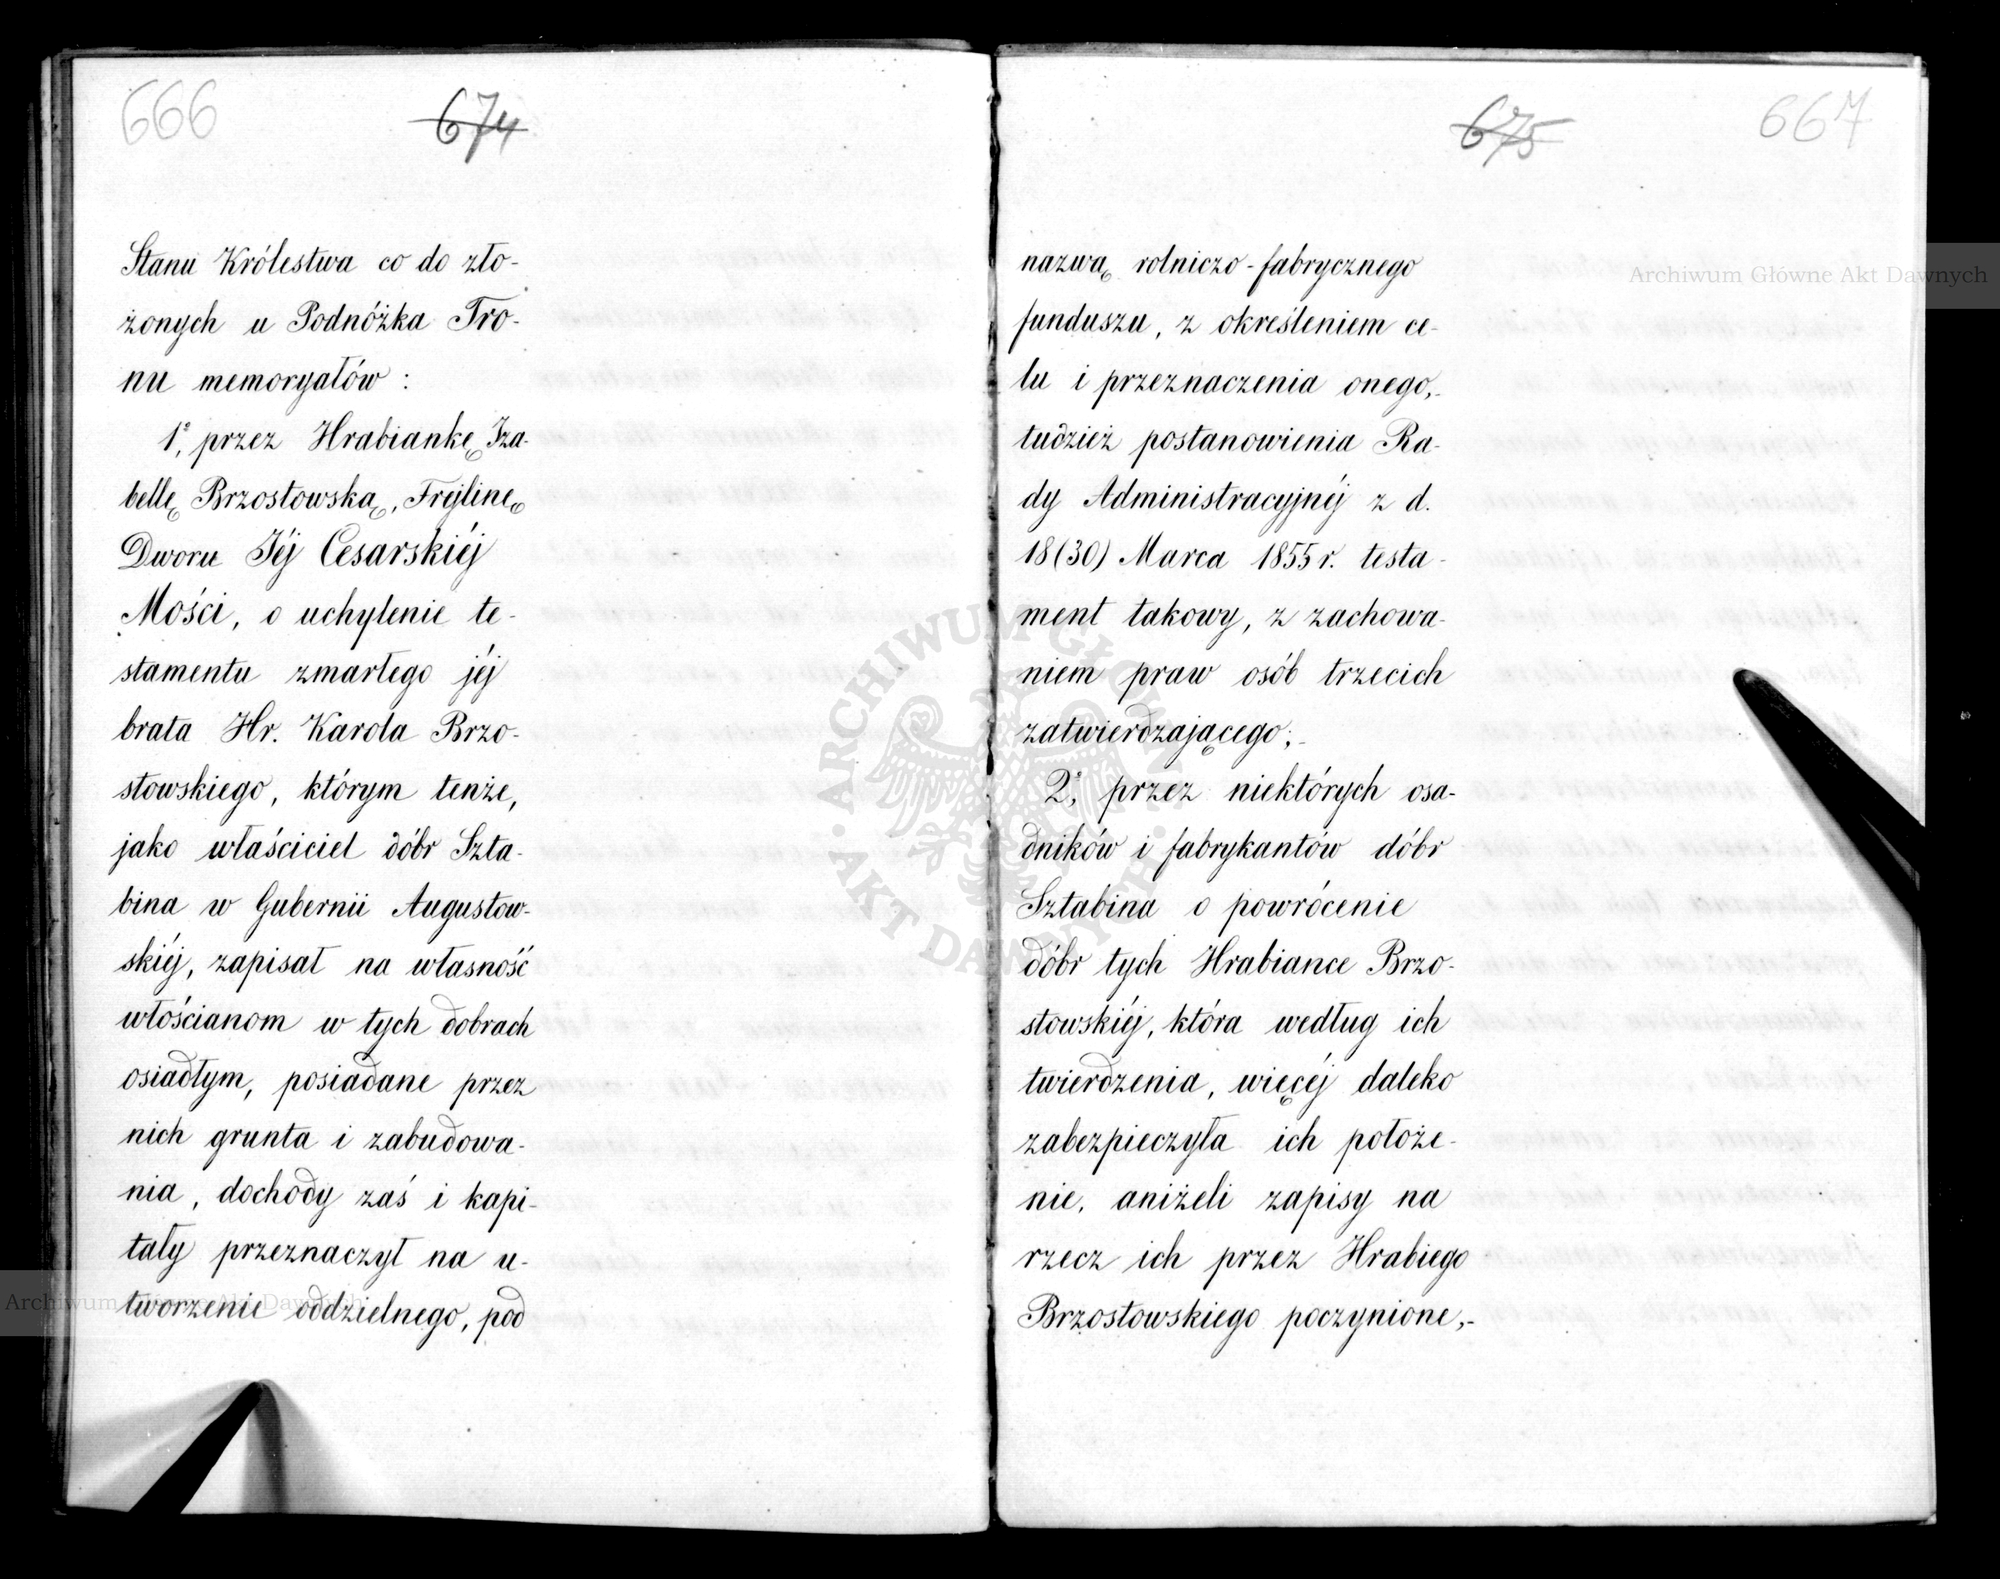 666
674
Stanu Królestwa co do zło-
żonych u Podnóżka Tro-
nu memoryałów :
1°, przez Hrabiankę Iza-
bellę Brzostowską, Frejlinę
Dworu Jéj Cesarskiéj
Mości, o uchylenie te-
stamentu zmarłego jéj
brata Hr. Karola Brzo-
stowskiego, którym tenże,
jako właściciel dóbr Szta-
bina w Gubernii Augustow-
skiéj, zapisał na własność
włościanom w tych dobrach
osiadłym, posiadane przez
nich grunta i zabudowa-
nia, dochody zaś i kapi-
tały przeznaczył na u-
tworzenie oddzielnego, pod
675
667
nazwą rolniczo-fabrycznego
funduszu, z określeniem ce-
lu i przeznaczenia onego,-
tudzież postanowienia Ra-
dy Administracyjnéj z d.
18(30) Marca 1855 r. testa-
ment takowy, z zachowa-
niem praw osób trzecich
zatwierdzającego;-
2°, przez niektórych osa-
dników i fabrykantów dóbr
Sztabina o powrócenie
dóbr tych Hrabiance Brzo-
stowskiéj, która według ich
twierdzenia, więcéj daleko
zabezpieczyła ich położe-
nie, aniżeli zapisy na
rzecz ich przez Hrabiego
Brzostowskiego poczynione,-
Archiwum Główne Akt Dawnych
Archiwum Główne Akt Dawnych
ARCHIWUM GŁÓWNE
AKT DAWNYCH